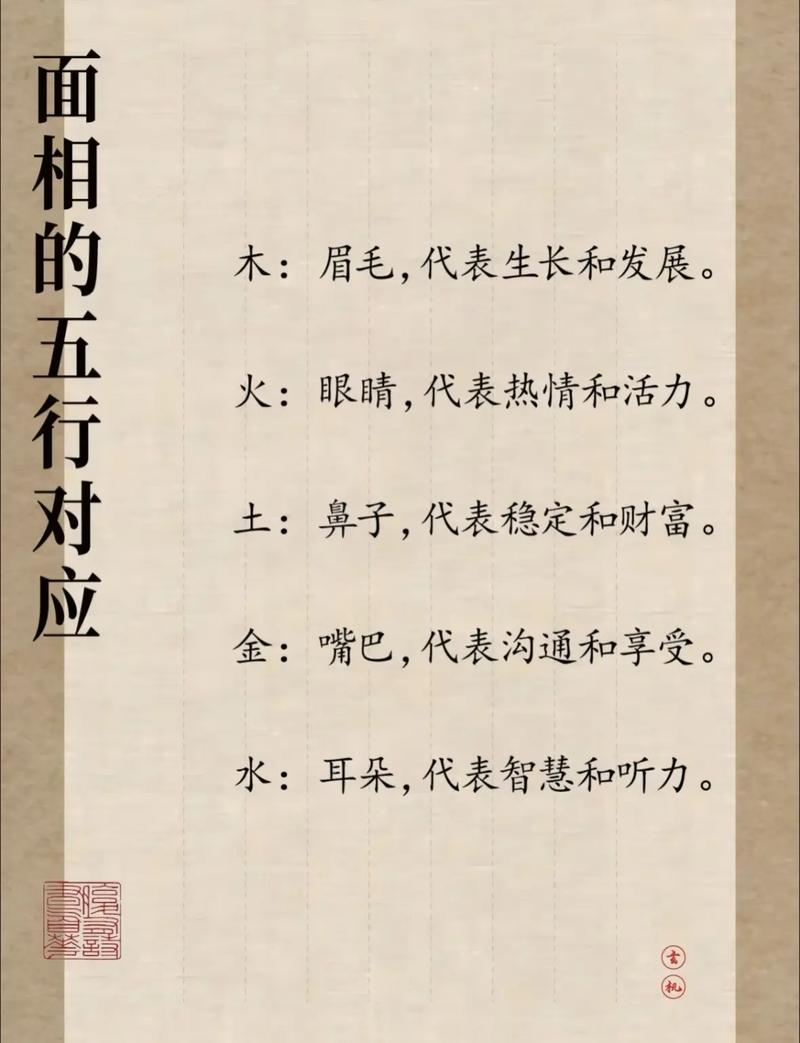 面相的五行对应
木：眉毛，代表生长和发展。
火：眼睛，代表热情和活力。
土：鼻子，代表稳定和财富。
金：嘴巴，代表沟通和享受。
水：耳朵，代表智慧和听力。
玄机